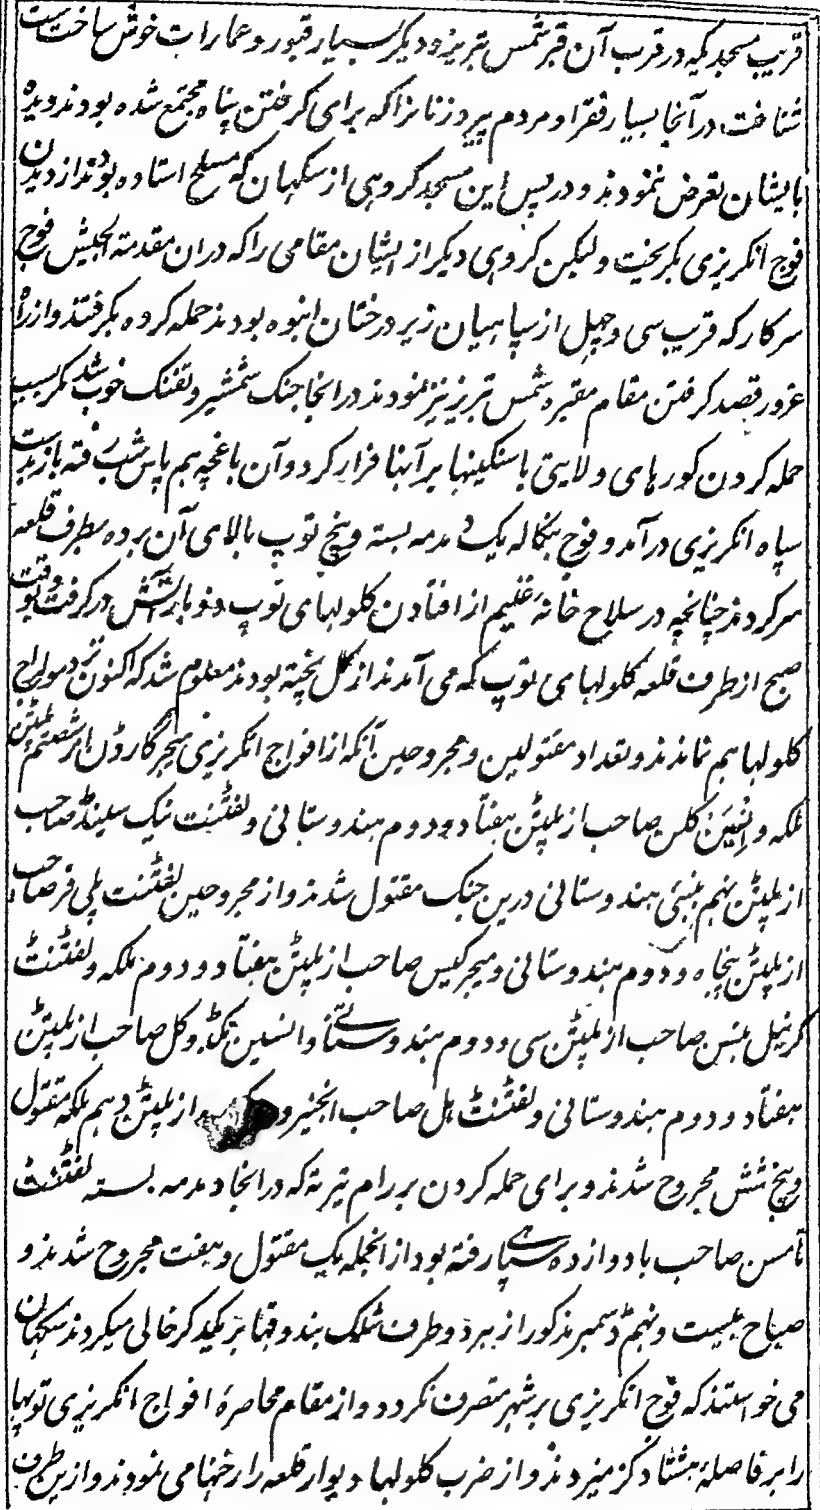 قریب مسجد که در قرب آن قبر شمس تبریز و دیگر بسیار قبور و عمارات خوش ساخت ست
شناخت در آنجا بسیار فقرا و مردم پیر و زنانرا که برای گرفتن پناه مجتمع شده بودند دیده
بایشان تعرض ننمودند و در پس این مسجد گروهی از سکهان که مسلح استاده بودند از دیدن
فوج انگریزی بگریخت و لیکن گروهی دیگر از ایشان مقامی را که دران مقدمة الجیش فوج
سرکار که قریب سی و چهل از سپاهیان زیر درختان انبوه بودند حمله کرده بگرفتند و از راه
غرور قصد گرفتن مقام مقبره شمس تبریز نیز نمودند در انجا جنگ شمشیر و تفنگ خوب شد مگر بسبب
حمله کردن گورهای ولایتی با سنگینها بر آنها فرار کرد و آن باغچه هم پاس شب رفته باز بدست
سپاه انگریزی درآمد و فوج بنگاله یک دمدمه بسته و پنج توپ بالای آن برده بطرف قلعه
سر کردند چنانچه در سلاح خانه غنیم از افتادن گلولهای توپ دو بار آتش در گرفت بوقت
صبح از طرف قلعه گلولهای توپ که می آمدند از گل پخته بودند معلوم شد که اکنون نزد مولراج
گلولها هم نماندند و تعداد مقتولین و مجروحین آنکه از افواج انگریزی میجر گارڈن از شصتم پلٹن
ملکه و انسین کلس صاحب از پلٹن هفتاد و دوم هندوستانی و لفٹننت نیک سلینڈ صاحب
از پلٹن نهم بنبئی هندوستانی درین جنگ مقتول شدند و از مجروحین لفٹننت پلی فر صاحب
از پلٹن پنجاه و دوم هندوستانی و میجر کیس صاحب از پلٹن هفتاد و دوم ملکه و لفٹننٹ
کرنیل بنس صاحب از پلٹن سی و دوم هندوستانی و انسین مکڈوکل صاحب از پلٹن
هفتاد و دوم هندوستانی و لفٹننٹ هل صاحب انجنیر و از پلٹن دهم ملکه مقتول
و پنج شش مجروح شدند و برای حمله کردن بر رام تیرته که در انجا دمدمه بسته لفٹننٹ
تامسن صاحب با دوازده سپاهی رفته بود از انجمله یک مقتول و هفت مجروح شدند و
صباح بیست و نهم ڈسمبر مذکور از هر دو طرف شلک بندوقها بر یکدگر خالی میکردند سکهان
می خواستند که فوج انگریزی بر شهر متصرف نگردد و از مقام محاصره افواج انگریزی توپها
را بر فاصله هشتاد گز میزدند و از ضرب گلولها دیوار قلعه را رخنها می نمودند و ازین طرف